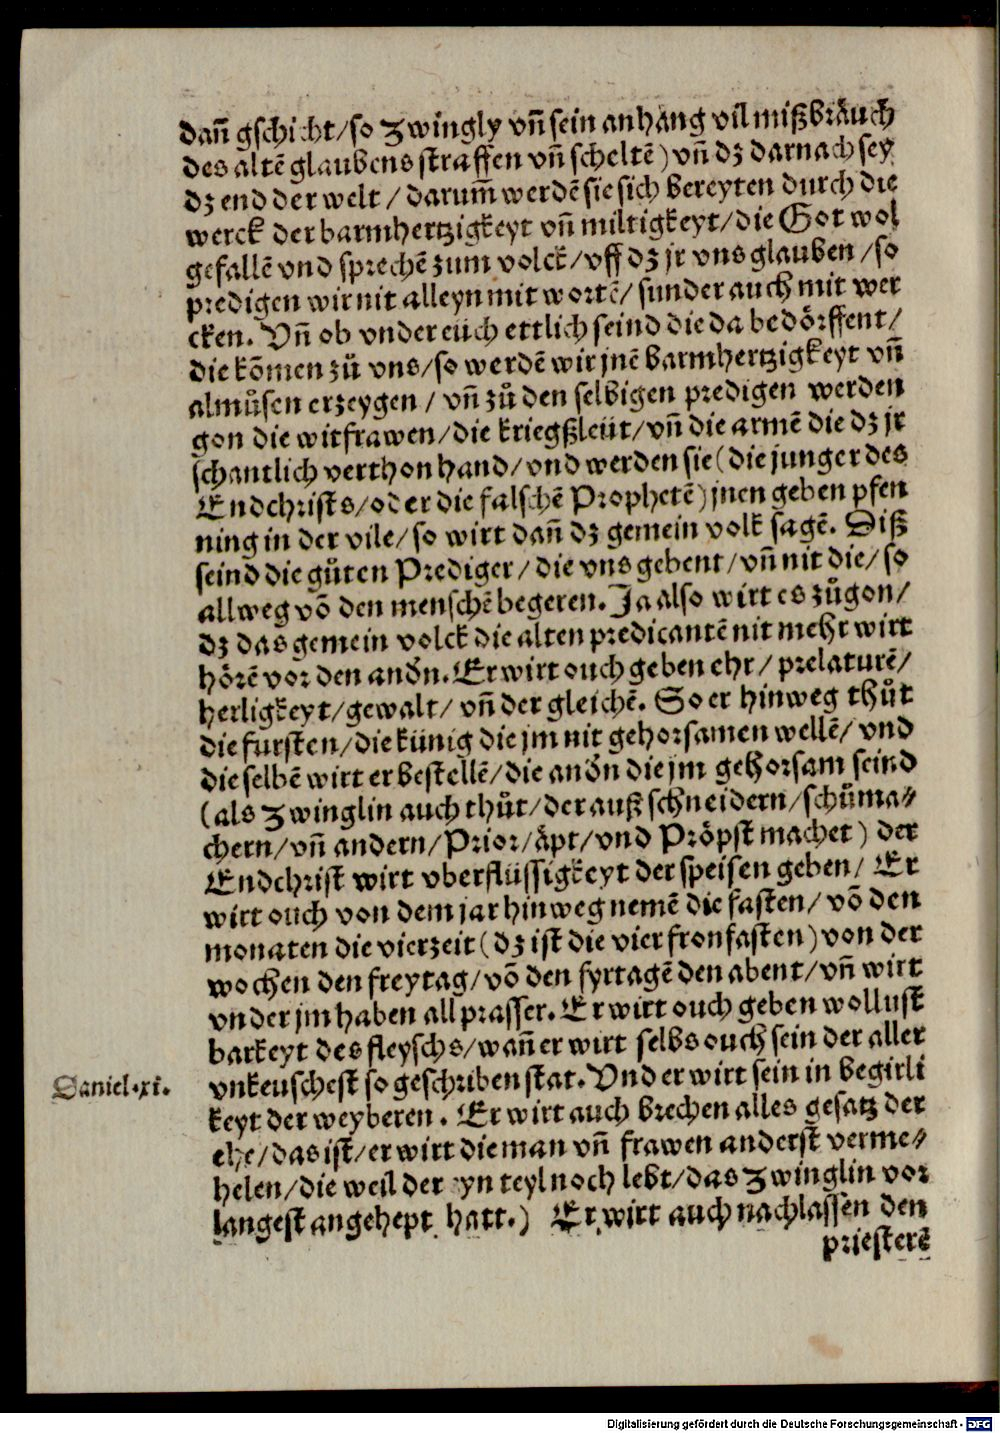 dañ gschicht/so Zwingly vñ sein anhang vil mißbräuch
des altẽ glaubens straffen vñ scheltẽ) vñ dz darnach sey
dz end der welt/ darum̃ werdẽ sie sich bereyten durch die
werck der barmhertzigkeyt vñ miltigkeyt/die Got wol
gefallẽ vnd sprechẽ zum volck/vff dz jr vns glauben/so
predigen wir nit alleyn mit wortẽ/ sunder auch mit wer
cken. Vñ ob vnder eüch ettlich seind die da bedörffent/
die kõmen zů vns/so werdẽ wir jnẽ barmhertzigkeyt vñ
almůsen erzeygen/ vñ zů den selbigen predigen werden
gon die witfrawen/die kriegßleüt/vñ die armẽ die dz jr
schantlich verthon hand/vnd werden sie (die junger des
Endchrists/oder die falschẽ Prophetẽ) jnen geben pfen
ning in der vile/ so wirt dañ dz gemein volk sagẽ. Diß
seind die gůten Prediger/ die vns gebent/vñ nit die/ so
allweg võ den menschẽ begeren. Ja also wirt es zůgon/
dz das gemein volck die alten predicantẽ nit mehr wirt
hörẽ vor den andn̄. Er wirt ouch geben ehr/ prelaturẽ/
herligkeyt/gewalt/ vñ der gleichẽ. So er hinweg thůt
die fursten/die künig die jm nit gehorsamen wellẽ/ vnd
die selbẽ wirt er bestellẽ/die andn̄ die jm gehorsam seind
(als Zwinglin auch thůt/der auß schneidern/schůma⸗
chern/vñ andern/Prior/äpt/vnd Pröpst machet) der
Endchrist wirt vberflüssigkeyt der speisen geben/ Er
wirt ouch von dem jar hinweg nemẽ die fasten/ võ den
monaten die vierzeit (dz ist die vier fronfasten) von der
wochen den freytag/võ den fyrtagẽ den abent/vñ wirt
vnder jm haben all prasser. Er wirt ouch geben wollust
barkeyt des fleyschs/wañ er wirt selbs ouch sein der aller
Daniel.xi. vnkeuschest so geschriben stat. Vnd er wirt sein in begirli
keyt der weyberen. Er wirt auch brechen alles gesatz der
ehe/das ist/er wirt die man vñ frawen anderst verme⸗
helen/die weil der eyn teyl noch lebt/das Zwinglin vor
langest angehept hatt.) Er wirt auch nachlassen den
priesterẽ
Digitalisierung gefördert durch die Deutsche Forschungsgemeinschaft - DFG